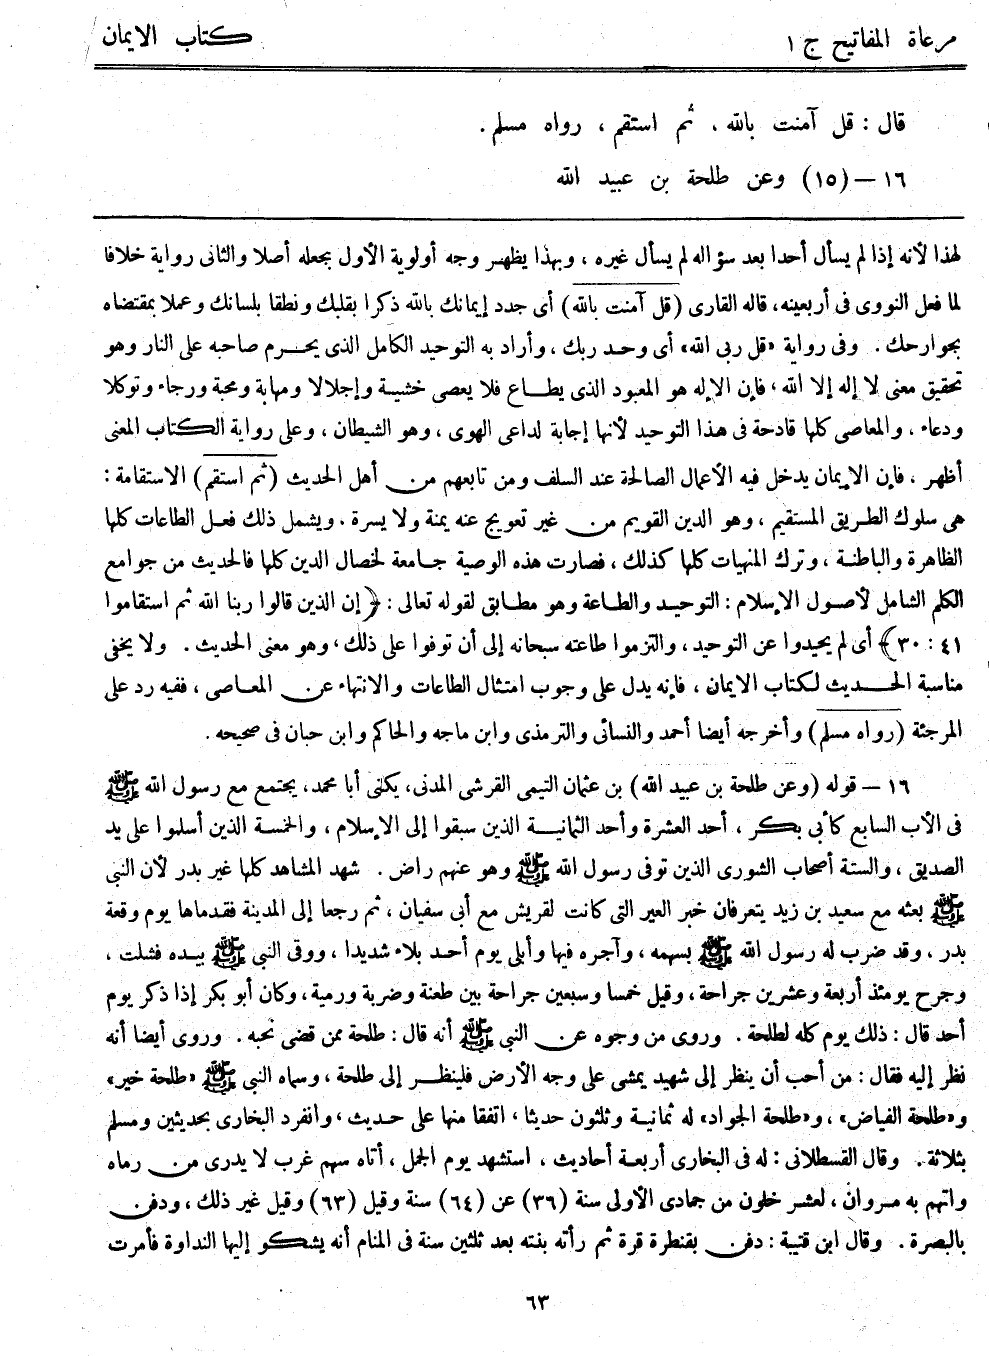 مرعاة المفاتيح ج ١
كتاب الايمان
قال : قل آمنت بالله ، ثم استقم ، رواه مسلم .
١٦ – (١٥) وعن طلحة بن عبيد الله
لهذا لأنه إذا لم يسأل أحدا بعد سؤاله لم يسأل غيره ، وبهذا يظهر وجه أولوية الأول بجعله أصلا والثانى رواية خلافا
لما فعل النووى فى أربعينه، قاله القارى (قل آمنت بالله) أى جدد إيمانك بالله ذكرا بقلبك ونطقا بلسانك وعملا بمقتضاه
بجوارحك . وفى رواية «قل ربى الله» أى وحد ربك ، وأراد به التوحيد الكامل الذى يحرم صاحبه على النار وهو
تحقيق معنى لا إله إلا الله ، فإن الإله هو المعبود الذى يطاع فلا يعصى خشية وإجلالا ومهابة ومحبة ورجاء وتوكلا
ودعاء ، والمعاصى كلها قادحة فى هذا التوحيد لأنها إجابة لداعى الهوى ، وهو الشيطان ، وعلى رواية الكتاب المعنى
أظهر ، فإن الإيمان يدخل فيه الأعمال الصالحة عند السلف ومن تابعهم من أهل الحديث (ثم استقم) الاستقامة :
هى سلوك الطريق المستقيم ، وهو الدين القويم من غير تعويج عنه يمنة ولا يسرة . ويشمل ذلك فعل الطاعات كلها
الظاهرة والباطنة ، وترك المنهيات كلها كذلك ، فصارت هذه الوصية جامعة لخصال الدين كلها فالحديث من جوامع
الكلم الشامل لأصول الإسلام : التوحيد والطاعة وهو مطابق لقوله تعالى : ﴿إن الذين قالوا ربنا الله ثم استقاموا
٤١ : ٣٠﴾ أى لم يحيدوا عن التوحيد ، والتزموا طاعته سبحانه إلى أن توفوا على ذلك ، وهو معنى الحديث . ولا يخفى
مناسبة الحديث لكتاب الايمان ، فإنه يدل على وجوب امتثال الطاعات والانتهاء عن المعاصى ، ففيه رد على
المرجئة (رواه مسلم) وأخرجه أيضا أحمد والنسائى والترمذى وابن ماجه والحاكم وابن حبان فى صحيحه .
١٦ – قوله (وعن طلحة بن عبيد الله) بن عثمان التيمى القرشى المدنى، يكنى أبا محمد، يجتمع مع رسول الله ﷺ
فى الأب السابع كأبى بكر ، أحد العشرة وأحد الثمانية الذين سبقوا إلى الإسلام ، والخمسة الذين أسلموا على يد
الصديق ، والستة أصحاب الشورى الذين توفى رسول الله ﷺ وهو عنهم راض . شهد المشاهد كلها غير بدر لأن النبى
ﷺ بعثه مع سعيد بن زيد يتعرفان خبر العير التى كانت لقريش مع أبى سفيان ، ثم رجعا إلى المدينة فقدماها يوم وقعة
بدر ، وقد ضرب له رسول الله ﷺ بسهمه ، وآجره فيها وأبلى يوم أحد بلاء شديدا ، ووقى النبى ﷺ بيده فشلت ،
وجرح يومئذ أربعة وعشرين جراحة ، وقيل خمسا وسبعين جراحة بين طعنة وضربة ورمية ، وكان أبو بكر إذا ذكر يوم
أحد قال : ذلك يوم كله لطلحة . وروى من وجوه عن النبى ﷺ أنه قال : طلحة ممن قضى نحبه . وروى أيضا أنه
نظر إليه فقال : من أحب أن ينظر إلى شهيد يمشى على وجه الأرض فلينظر إلى طلحة ، وسماه النبى ﷺ «طلحة خير»
و«طلحة الفياض» ، و«طلحة الجواد» له ثمانية وثلثون حديثا ، اتفقا منها على حديث ، وانفرد البخارى بحديثين ومسلم
بثلاثة . وقال القسطلانى : له فى البخارى أربعة أحاديث ، استشهد يوم الجمل ، أتاه سهم غرب لا يدرى من رماه
واتهم به مروان ، لعشر خلون من جمادى الأولى سنة (٣٦) عن (٦٤) سنة وقيل (٦٣) وقيل غير ذلك ، ودفن
بالبصرة . وقال ابن قتيبة : دفن بقنطرة قرة ثم رأته بنته بعد ثلثين سنة فى المنام أنه يشكو إليها النداوة فأمرت
٦٣